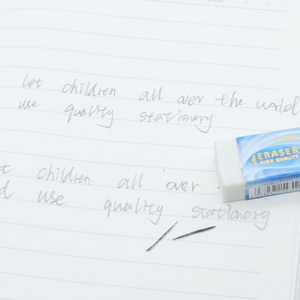 let children all over the world
use quality stationery
ERASER
HIGH QUALITY
children all over
use quality stationery